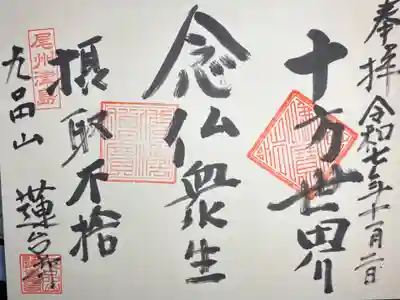 奉拝 令和七年十一月二日
十方世界
念仏衆生
摂取不捨
尾州津島
九品山 蓮台寺